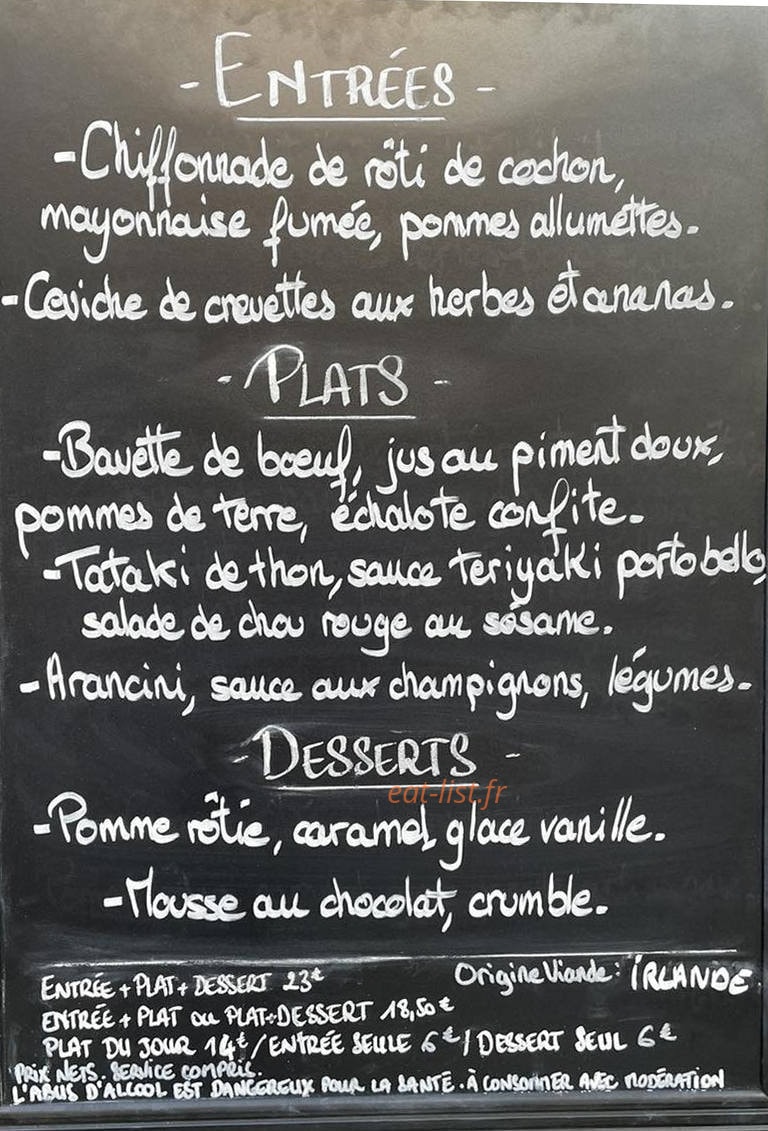 - ENTRÉES -
- Chiffonnade de rôti de cochon,
mayonnaise fumée, pommes allumettes.
- Ceviche de crevettes aux herbes et ananas.
- PLATS -
- Bavette de boeuf, jus au piment doux,
pommes de terre, échalote confite.
- Tataki de thon, sauce teriyaki portobello,
salade de chou rouge au sésame.
- Arancini, sauce aux champignons, légumes.
- DESSERTS -
eat-list.fr
- Pomme rôtie, caramel, glace vanille.
- Mousse au chocolat, crumble.
ENTRÉE + PLAT + DESSERT 23€
Origine Viande : IRLANDE
ENTRÉE + PLAT ou PLAT + DESSERT 18,50€
PLAT DU JOUR 14€ / ENTRÉE SEULE 6€ / DESSERT SEUL 6€
PRIX NETS. SERVICE COMPRIS.
L'ABUS D'ALCOOL EST DANGEREUX POUR LA SANTÉ. À CONSOMMER AVEC MODÉRATION